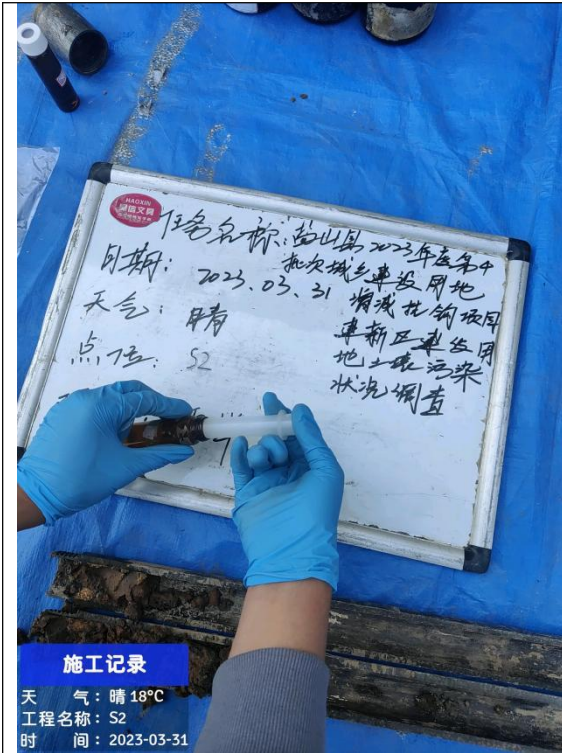 HAOXIN
任务名称：盐山县2023年度第4
批次城乡建设用地
增减挂钩项目
建新区建设用
地土壤污染
状况调查
日期：2023.03.31
天气：晴
点位：S2
施工记录
天 气：晴 18℃
工程名称：S2
时 间：2023-03-31